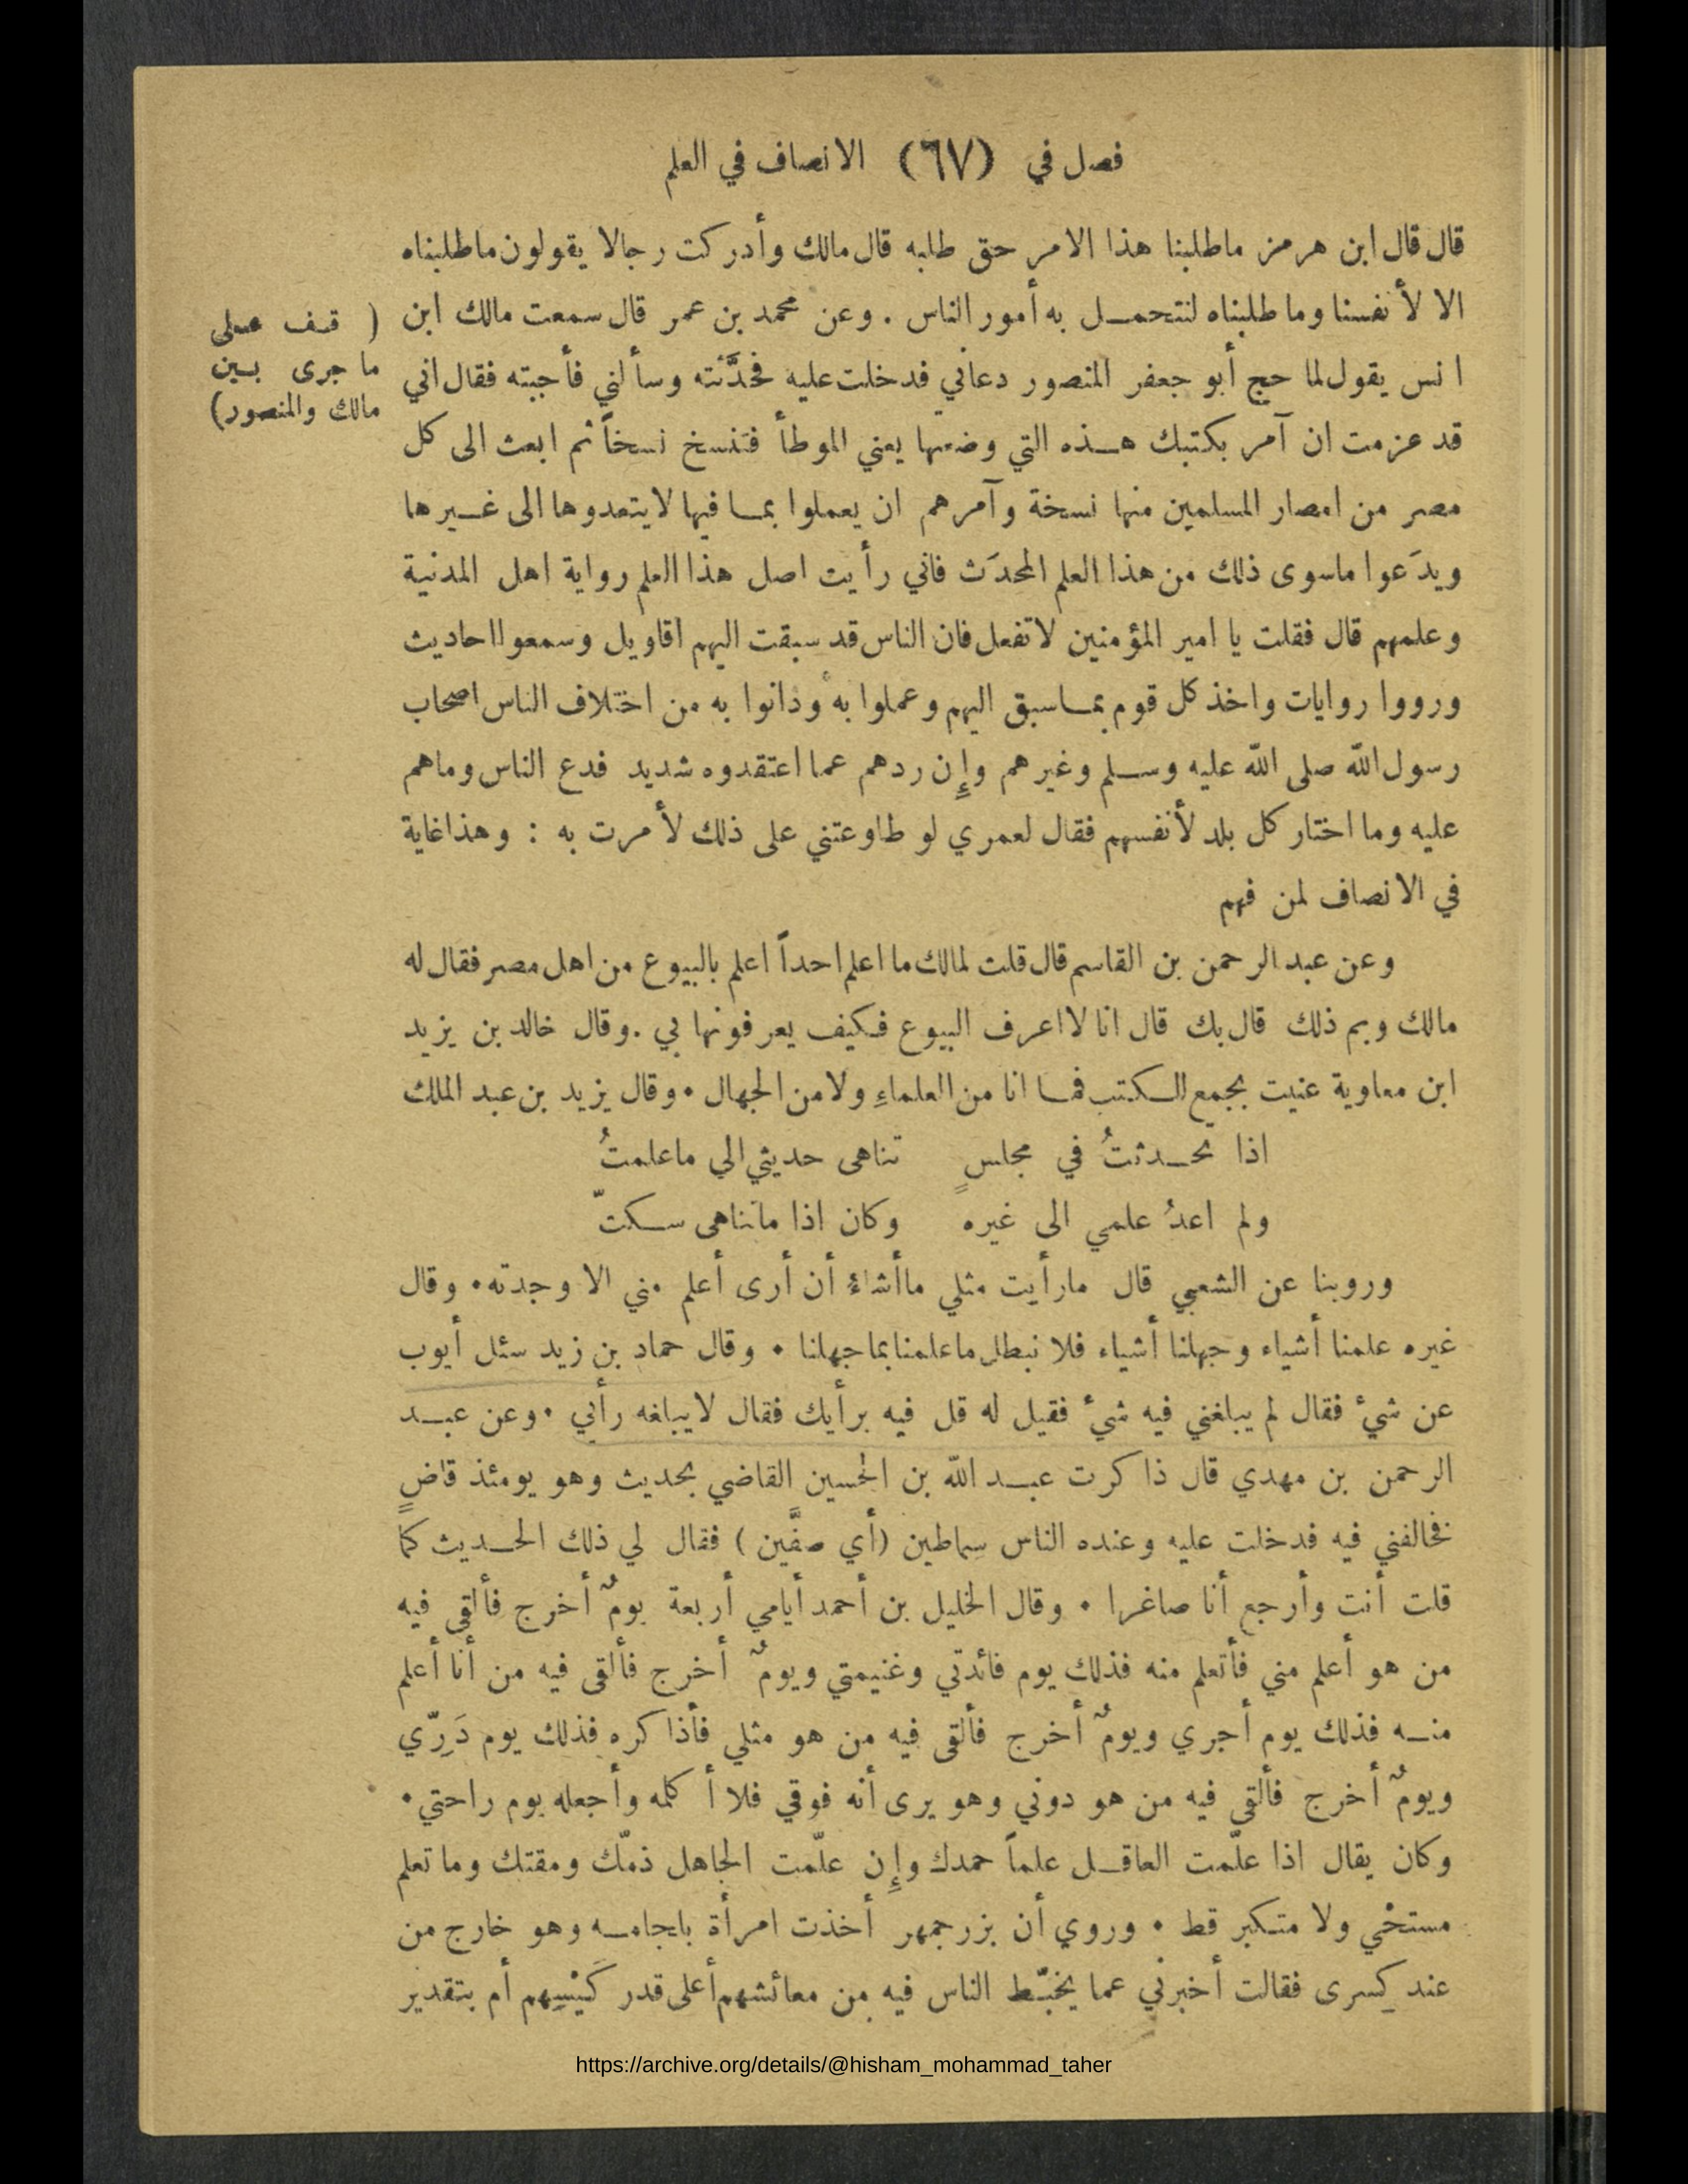 فصل في (٦٧) الانصاف في العلم
قال قال ابن هرمز ماطلبنا هذا الامر حق طلبه قال مالك وأدركت رجالا يقولون ماطلبناه
الا لأنفسنا وما طلبناه لنتحمل به أمور الناس . وعن محمد بن عمر قال سمعت مالك ابن
انس يقول لما حج أبو جعفر المنصور دعاني فدخلت عليه فحدَّثته وسألني فأجبته فقال اني
قد عزمت ان آمر بكتبك هذه التي وضعتها يعني الموطأ فتنسخ نسخاً ثم ابعث الى كل
مصر من امصار المسلمين منها نسخة وآمرهم ان يعملوا بما فيها لايتعدوها الى غيرها
ويدَعوا ماسوى ذلك من هذا العلم المحدَث فاني رأيت اصل هذا العلم رواية اهل المدنية
وعلمهم قال فقلت يا امير المؤمنين لاتفعل فان الناس قد سبقت اليهم اقاويل وسمعوا احاديث
ورووا روايات واخذ كل قوم بما سبق اليهم وعملوا به ودانوا به من اختلاف الناس اصحاب
رسول الله صلى الله عليه وسلم وغيرهم وإِن ردهم عما اعتقدوه شديد فدع الناس وماهم
عليه وما اختار كل بلد لأنفسهم فقال لعمري لو طاوعتني على ذلك لأمرت به : وهذا غاية
في الانصاف لمن فهم
( قف على
ما جرى بين
مالك والمنصور)
وعن عبد الرحمن بن القاسم قال قلت لمالك ما اعلم احداً اعلم بالبيوع من اهل مصر فقال له
مالك وبم ذلك قال بك قال انا لا اعرف البيوع فكيف يعرفونها بي . وقال خالد بن يزيد
ابن معاوية عنيت بجمع الكتب فما انا من العلماءِ ولا من الجهال • وقال يزيد بن عبد الملك
اذا تحدثتُ في مجلسٍ تناهى حديثي الي ماعلمتُ
ولم اعدُ علمي الى غيره وكان اذا ماتناهى سكتّ
وروينا عن الشعبي قال مارأيت مثلي ماأشاءُ أن أرى أعلم مني الا وجدته • وقال
غيره علمنا أشياء وجهلنا أشياء فلا نبطل ماعلمنا بما جهلنا • وقال حماد بن زيد سئل أيوب
عن شيءٍ فقال لم يبلغني فيه شيءٌ فقيل له قل فيه برأيك فقال لايبلغه رأيي • وعن عبد
الرحمن بن مهدي قال ذاكرت عبد الله بن الحسين القاضي بحديث وهو يومئذ قاضٍ
فخالفني فيه فدخلت عليه وعنده الناس سِماطين (أي صفَّين ) فقال لي ذلك الحديث كما
قلت أنت وأرجع أنا صاغرا • وقال الخليل بن أحمد أيامي أربعة يومٌ أخرج فألقى فيه
من هو أعلم مني فأتعلم منه فذلك يوم فائدتي وغنيمتي ويومٌ أخرج فألقى فيه من أنا أعلم
منه فذلك يوم أجري ويومٌ أخرج فألقى فيه من هو مثلي فأذاكره فذلك يوم دَرِّي
ويومٌ أخرج فألقى فيه من هو دوني وهو يرى أنه فوقي فلا أكلمه وأجعله يوم راحتي •
وكان يقال اذا علّمت العاقل علماً حمدك وإِن علّمت الجاهل ذمّك ومقتك وما تعلم
مستحْي ولا متكبر قط • وروي أن بزرجمهر أخذت امرأة بلجامه وهو خارج من
عند كِسرى فقالت أخبرني عما يخبّط الناس فيه من معائشهم أعلى قدر كَيْسِهم أم بتقدير
https://archive.org/details/@hisham_mohammad_taher